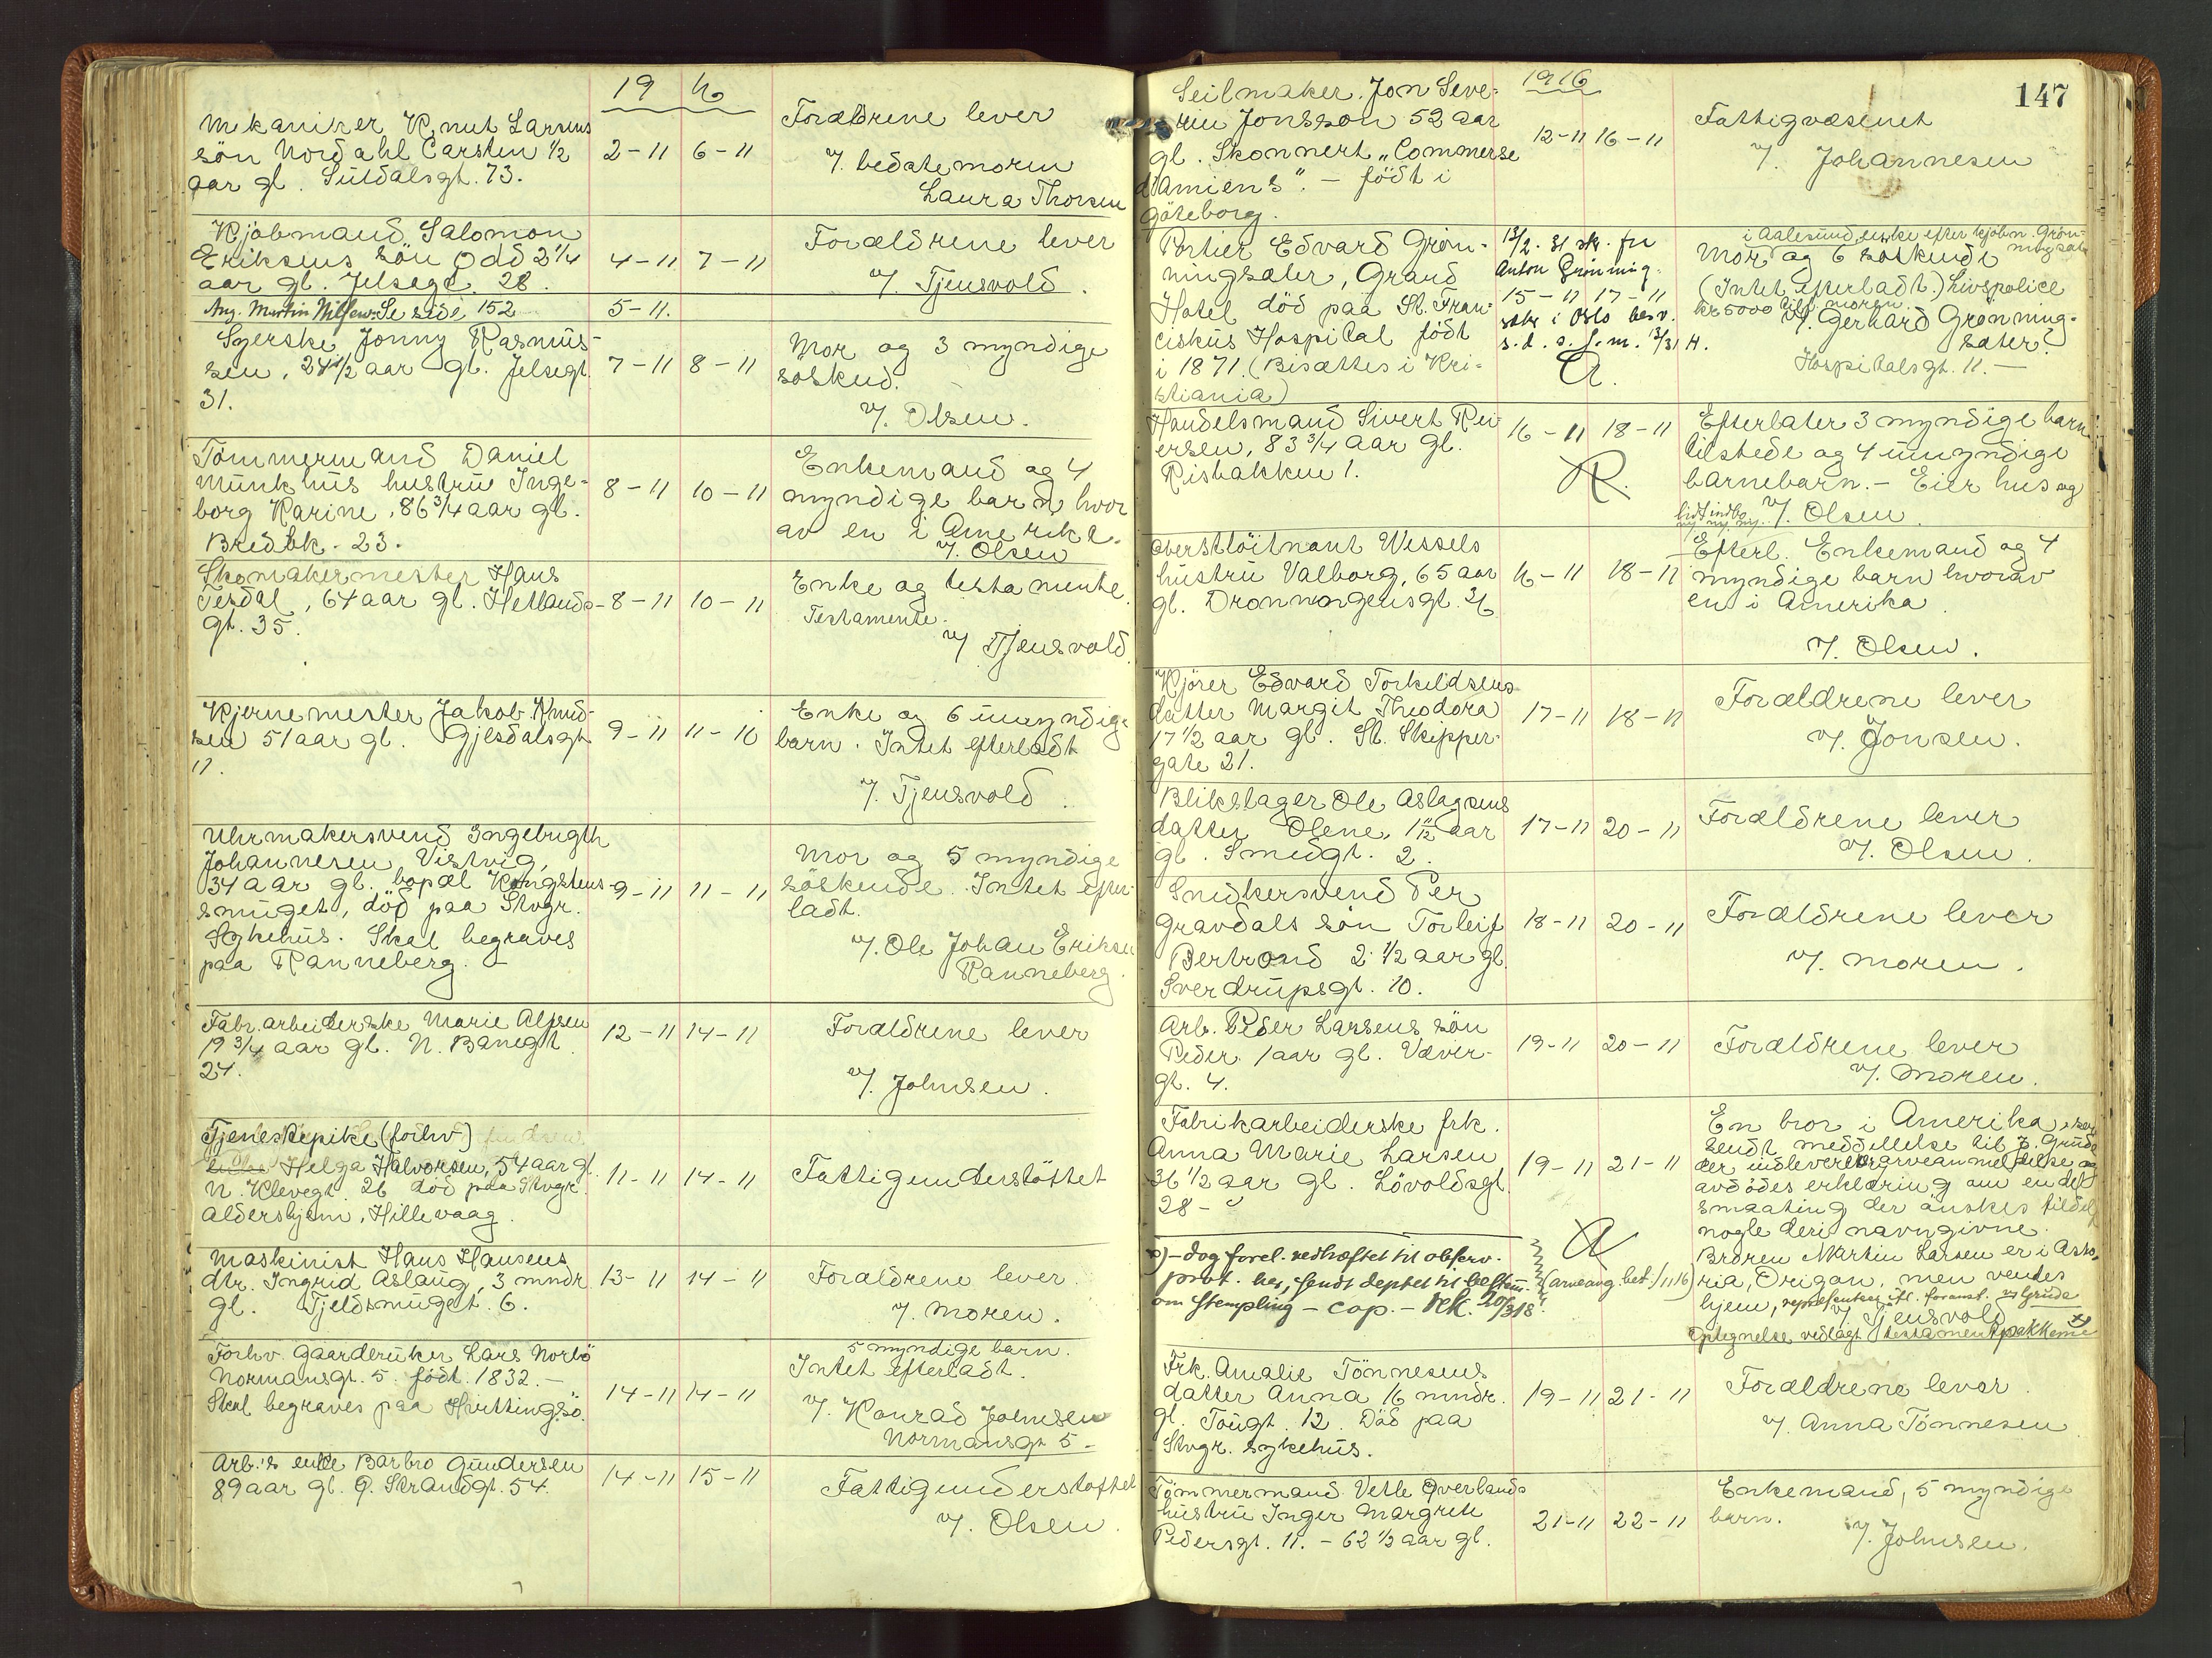 19 16
Mekaniker Knut Larsens
sön Nordahl Carsten 1/2
aar gl. Suldalsgt. 73.
2-11 6-11
Forældrene lever
v/. bedstemoren
Laura Thorsen
Kjöbmand Salomon
Eriksens sön Odd 2 1/4
aar gl. Jelsegt. 28.
4-11 7-11
Forældrene lever
v/. Tjensvold.
Ang. Martin Nilsen Se side 152
5-11.
Syerske Jonny Rasmus-
sen, 24 1/2 aar gl. Jelsegt.
31.
7-11 8-11
Mor og 3 myndige
søskend.
v/. Olsen.
Tömmermand Daniel
Munkhus hustru Inge-
borg Karine, 86 3/4 aar gl.
Bredbk. 23.
8-11 10-11
Enkemand og 4
myndige barn hvor
av en i Amerika.
v/. Olsen
Skomakermester Hans
Tesdal, 64 aar gl. Hetlands-
gt. 35.
8-11 10-11
Enke og testamente.
Testamente.
v/ Tjensvold.
Kjernemester Jakob Knud-
sen 51 aar gl. Gjesdalsgt.
11.
9-11 11-10
Enke og 6 umyndige
barn. Intet efterladt
v/. Tjensvold.
Uhrmakersvend Ingebrigth
Johannesen Vistvig,
34 aar gl. bopæl Kongstens-
smuget, död paa Stvgr.
Sykehus. Skal begraves
paa Ranneberg.-
9-11 11-11
Mor og 5 myndige
söskende. Intet efter-
ladt.
v/. Ole Johan Eriksen
Ranneberg.
Fabr. arbeiderske Marie Alfsen
19 3/4 aar gl. N. Banegt.
24.
12-11 14-11
Forældrene lever
v/. Johnsen.
Tjenestepike (forhv.)
Helga Halvorsen, 54 aar gl.
N. Klevegt. 26 död paa Stvgr.
Aldershjem, Hillevaag.
11-11 14-11
Fattigunderstöttet
Maskinist Hans Hansens
dtr. Ingrid Aslaug, 3 mndr.
gl. Tjeldsmuget. 6.
13-11 14-11
Forældrene lever.
v/. moren.
Forhv. Gaardbruker Lars Norbö
Normansgt. 5. födt. 1832.-
Skal begraves paa Hvittingsö.
14-11 14-11
5 myndige barn.
Intet efterladt.
v/. Konrad Johnsen
Normansgt 5-
Arb.'s enke Barbro Gundersen
89 aar gl. Ö. Strandgt. 54.
14-11 15-11
Fattigunderstøttet
v/. Olsen.
147
1916
Seilmaker. Jon Seve-
rin Jonsson 52 aar
gl. Skonnert "Commerse
d'Amiens". - födt i
Göteborg.
12-11 16-11
Fattigvæsenet
v/. Johannesen
Portier Edvard Grøn-
ningsæter, Grand
Hotel död paa St. Fran-
ciskus Hospital födt
i 1871. (Bisættes i Kri-
stiania)
13/2. 31 sk. fra
Anton Grønning-
15-11 17-11
sæter i Oslo besv.
s. d. s. f. m. 13/2 31 H.
R.
i Aalesund, enke efter kjøbm. Grøn-
ningsæter
Mor og 6 søskende
(Intet efterladt.) Livspolice
kr 5000 til moren.
v/. Gerhard Grønning-
sæter.
Hospitalsgt. 11.-
Handelsmand Sivert Rei-
ersen, 83 3/4 aar gl.
Risbakken 1.
16-11 18-11
R.
Efterlater 3 myndige barn
tilstede og 4 umyndige
barnebarn.- Eier hus og
lidt indbo
v/. Olsen.
Oberstlöitnant Wessels
hustru Valborg, 65 aar
gl. Dronningensgt. 36
16-11 18-11
Efterl. Enkemand og 4
myndige barn hvorav
en i Amerika.
v/. Olsen.
Kjörer Edvard Torkildsens
datter Margit Theodora
17 1/2 aar gl. St. Skipper-
gate 21.
17-11 18-11
Forældrene lever
v/. Jonsen.
Blikslager Ole Aslagsens
datter Olene, 1 11/12 aar
gl. Smedgt. 2.
17-11 20-11
Forældrene lever
v/. Olsen.
Snedkersvend Per
Gravdals sön Torleif
Bertrand 2 1/2 aar gl.
Sverdrupsgt. 10.
18-11 20-11
Forældrene lever
v/. moren.
Arb. Peder Larsens sön
Peder. 1 aar gl. Væver-
gt. 4.
19-11 20-11
Forældrene lever
v/. moren.
Fabrikarbeiderske frk.
Anna Marie Larsen
36 1/2 aar gl. Lövoldsgt.
28-
19-11 21-11
R
En bror i Amerika, skr.
sendt meddellelse til J. Grude
der indleverer arveanmeldelse og
avdödes erklæring om en del
smaating der önskes tildelt
nogle deri navngivne.
Broren Martin Larsen er i Asto-
ria, Origan, men ventes
hjem, representeres ifl. foranst. v/ Grude
v/ Tjensvold
Optegnelse vedlagt testamentpakkerne x)
x)-dog forel. vedhæftet til observ.
prot. her, sendt deptet til bestem.
om stempling - cop. - rek. 20/3 18.
(arveavg. bet. / 11 16)
Frk. Amalie Tönnesens
datter Anna 16 mndr.
gl. Tougt. 12. Död paa
Stvgr. sykehus.
19-11 21-11
Forældrene lever.
v/ Anna Tönnesen
Tömmermand Vetle Överlands
hustru Inger Margrete
Pedersgt. 11. - 62 1/2 aar gl.
21-11 22-11
Enkemand, 5 myndige
barn.
v/. Johnsen.